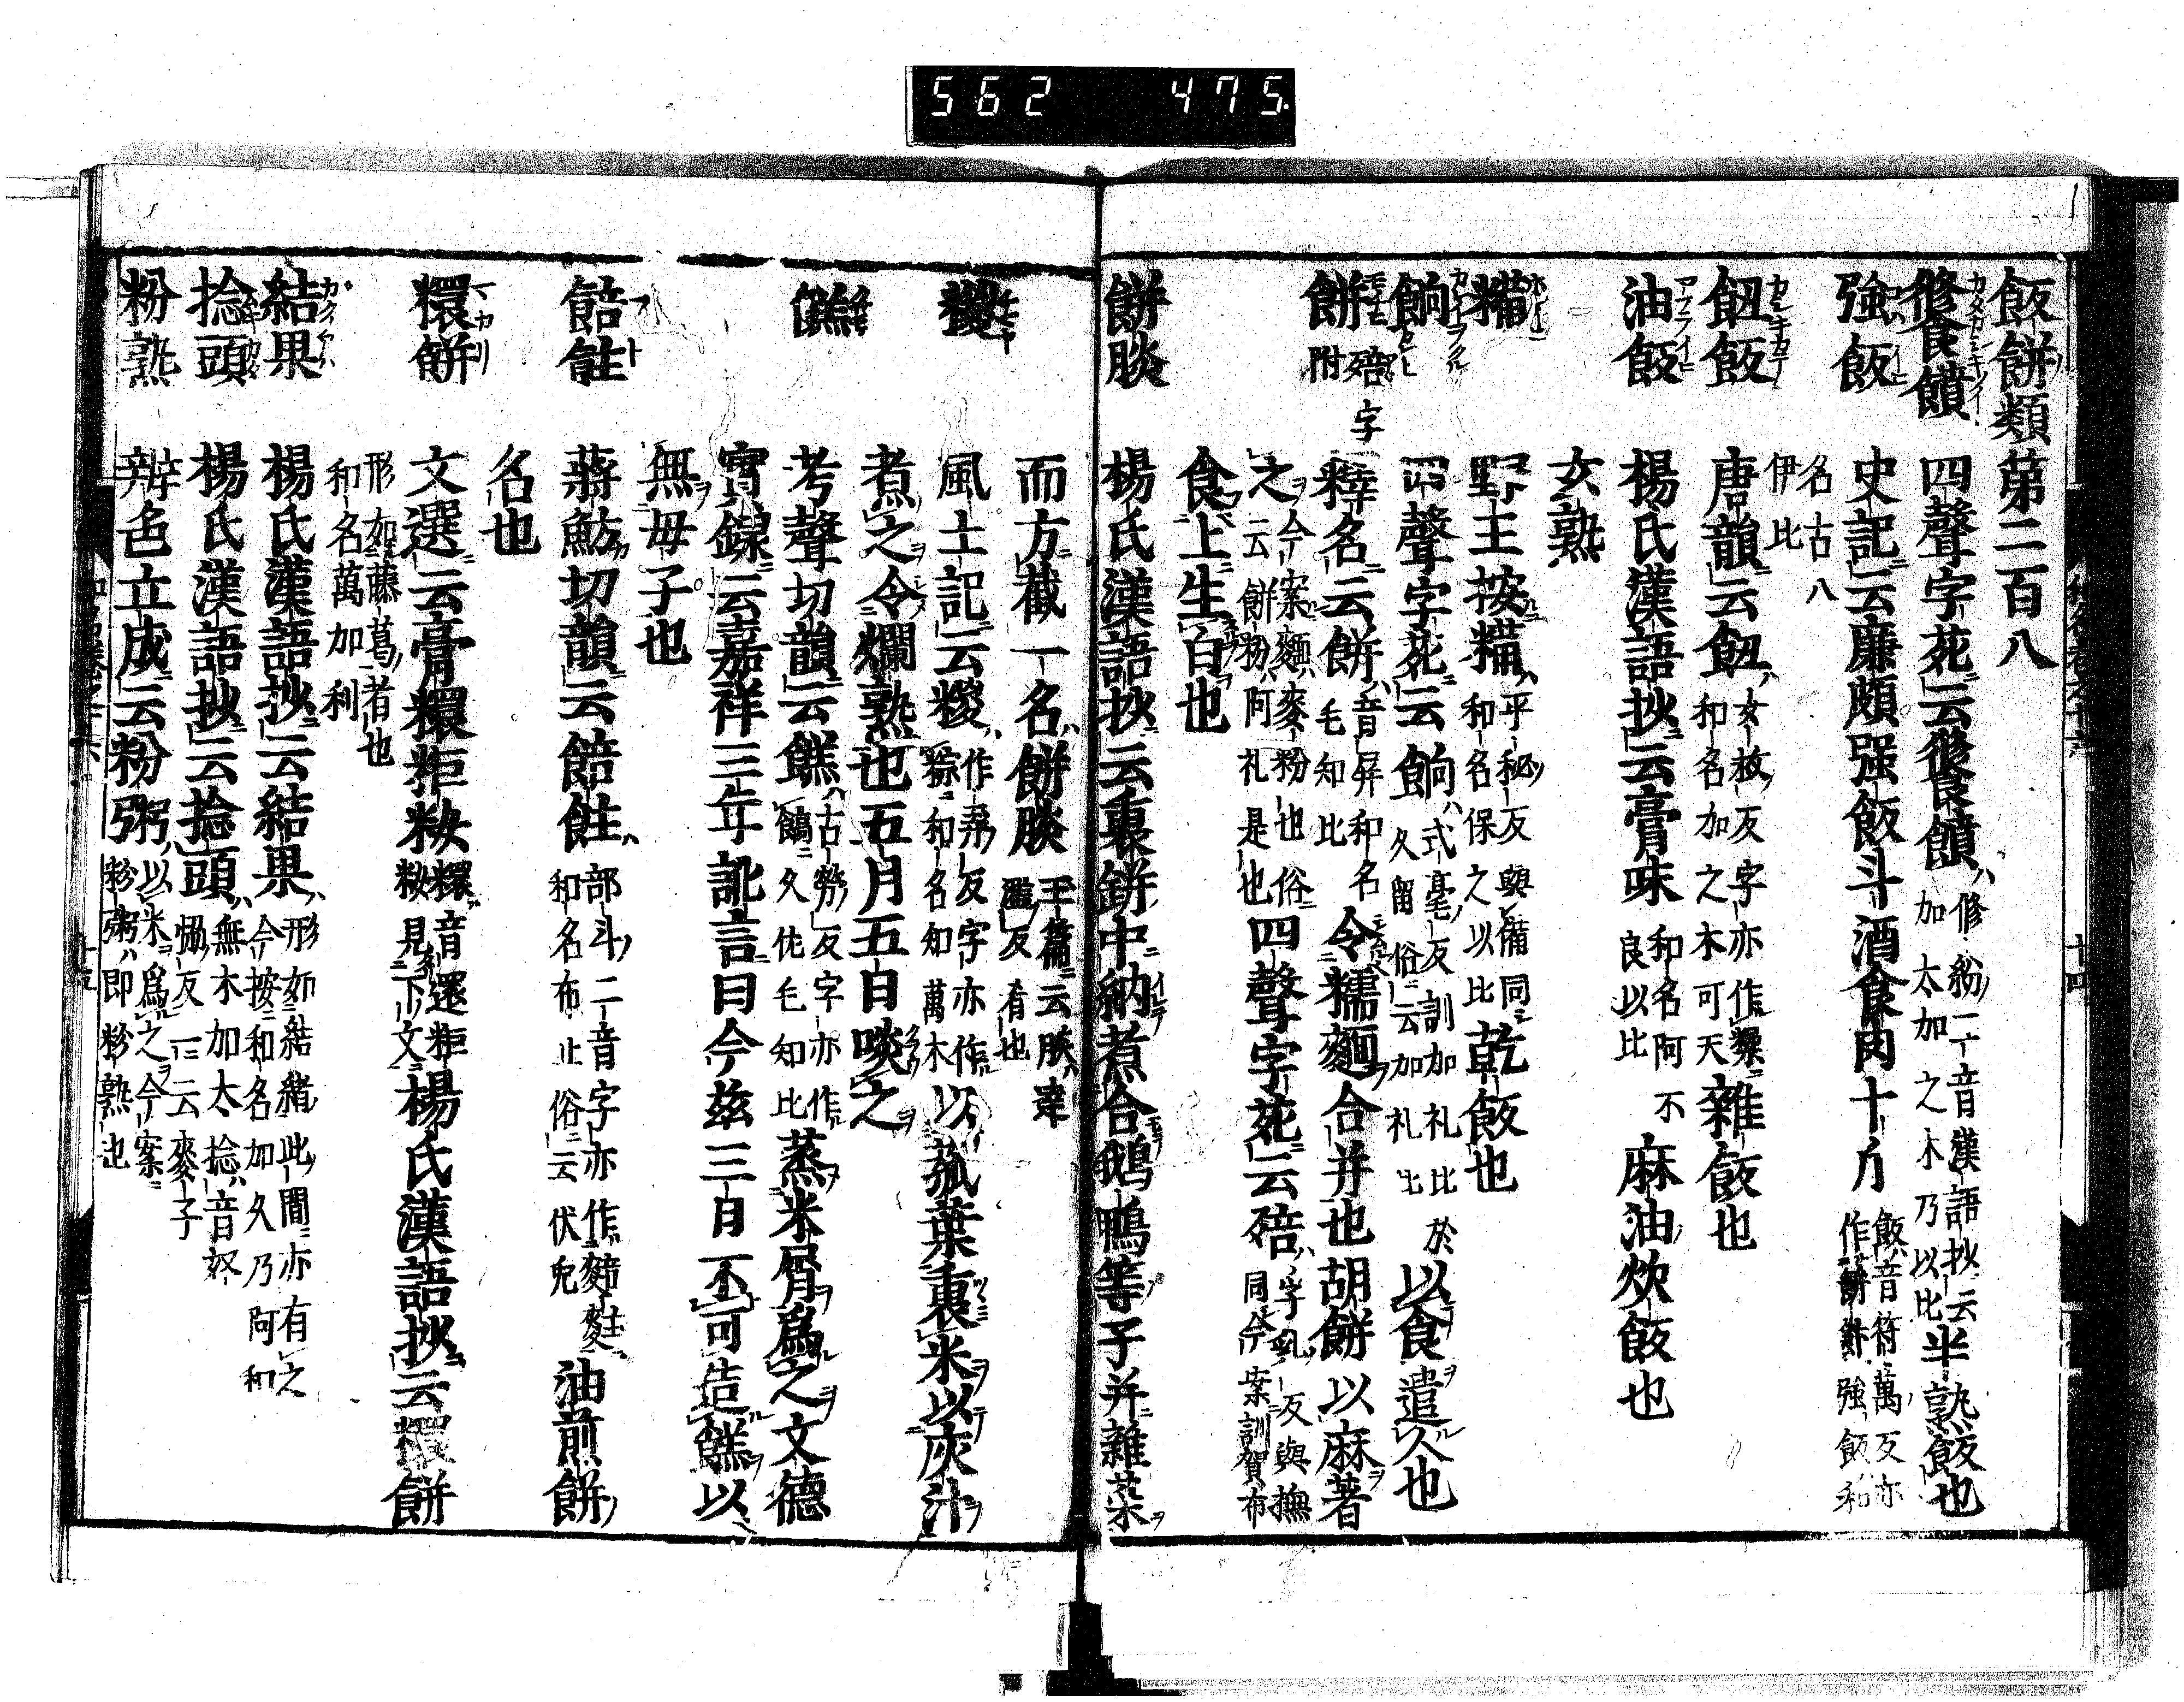 562 475
飯餅類第二百八
䭉饙 四聲字苑云䭉饙 修紛二音漢語抄云 加太加之木乃以比 半熟飯也
強飯 史記云廉頗强飯斗酒食肉十斤 飯音符萬反亦 作餅飰強飯和
名古八
伊比
飯 唐韻云 女救反字亦作 和名加之木可天 雜飯也
油飯 楊氏漢語抄云膏味 和名阿不 良以比 麻油炊飯也
玄熟
糒 野王按糒 乎秘反與備同 和名保之以比 乾飯也
餉 四聲字苑云餉 式亳反訓加礼比於 久留俗云加礼比 以食遣人也
餅 字附 釋名云餅 音屏和名 毛知比 令糯麵合并也胡餅以麻著
之 今案麵麥粉也俗 云餅粉阿礼是也 四聲字苑云 字乳反與撫 同今案訓賀布
食上生白也
餅腅 楊氏漢語抄云裹餅中納煮合鵝鴨等子并雜菜
而方截一名餅腅 玉篇云腅達 濫反肴也
糉 風土記云糉 作弄反字亦作 粽和名知萬木 以菰葉裹米以灰汁
煮之令爛熟也五月五日啖之
餻 考聲切韻云餻 古勞反字亦作 久佐毛知比 蒸米屑爲之文德
實錄云嘉祥三年訛言曰今茲三日不可造餻以
無母子也
餢飳 蔣魴切韻云餢飳 部斗二音字亦作 和名布止俗云伏兔 油煎餅
名也
糫餅 文選云膏糫粔籹 糫音還粔 籹見下文 楊氏漢語抄云糫餅
形如藤葛者也
和名萬加利
結果 楊氏漢語抄云結果 形如結緒此間亦有之 今按和名加久乃阿和
捻頭 楊氏漢語抄云捻頭 無木加太捻音奴 協反一云麥子
粉熟 辨色立成云粉粥 以米爲之今案 粉粥即粉熟也